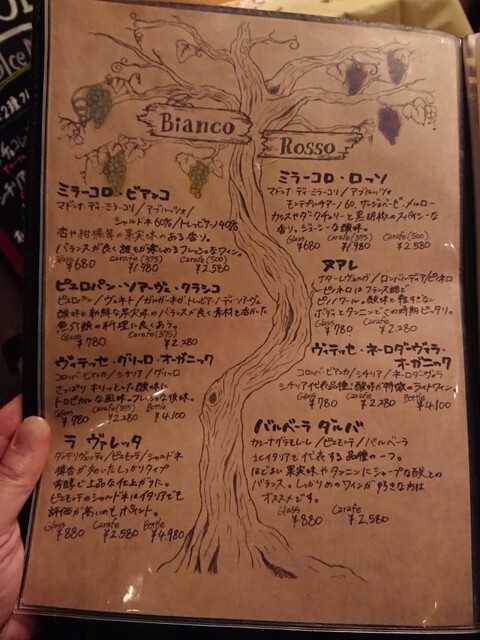 Bianco
ミラーコロ・ビアンコ
マドンナ・ディ・ミラーコリ／アブルッツォ／
シャルドネ60%/トレッビアーノ40%
杏や柑橘等の果実味のある香り。
バランスが良く誰もが楽しめるフレッシュなワイン。
Glass Carafe(375) Carafe(500)
¥680 ¥1,980 ¥2,580
ピエロパン・ソアーヴェ・クラシコ
ピエロパン／ヴェネト／ガルガーネガ、トレッビアーノ・ディ・ソアーヴェ
酸味と新鮮な果実味のバランスが良く素材を活かした
魚介類の料理に良くあう。
Glass Carafe(375)
¥780 ¥2,280
ヴィテッセ・グリッロ・オーガニック
コロンバ・ビアンカ／シチリア／グリッロ
さっぱりキリッとした酸味と
トロピカルな風味。フレッシュな後味。
Glass Carafe(375) Bottle
¥780 ¥2,280 ¥4,100
ラ ヴァレッタ
ピエモンテ／シャルドネ
樽香がきいたしっかりタイプ
芳醇で上品な仕上がりに。
ピエモンテのシャルドネはイタリアでも
評価が高いのもポイント。
Glass Carafe Bottle
¥880 ¥2,580 ¥4,980
Rosso
ミラーコロ・ロッソ
マドンナ・ディ・ミラーコリ／アブルッツォ
モンテプルチアーノ60、サンジョベーゼ、メルロー
カシスやダークチェリーと黒胡椒のスパイシーな
香り。ジューシーな酸味。
Glass Carafe(375) Carafe(500)
¥680 ¥1,980 ¥2,580
ヌアレ
ロンバーディア／ピネロ
ピネロはフランス語で
ピノノワール。酸味も強すぎない
ボディとタンニンでこの時期ピッタリ。
Glass Carafe
¥780 ¥2,280
ヴィテッセ・ネーロダーヴォラ・
オーガニック
コロンバ・ビアンカ／シチリア／ネーロダーヴォラ
シチリア代表品種！酸味が特徴のライトワイン
Glass Carafe Bottle
¥780 ¥2,280 ¥4,100
バルベーラ ダルバ
ピエモンテ／バルベーラ
北イタリアを代表する品種の一つ。
ほどよい果実味やタンニンにシャープな酸との
バランス。しっかりめのワインが好きな方に
オススメです。
Glass Carafe
¥880 ¥2,580